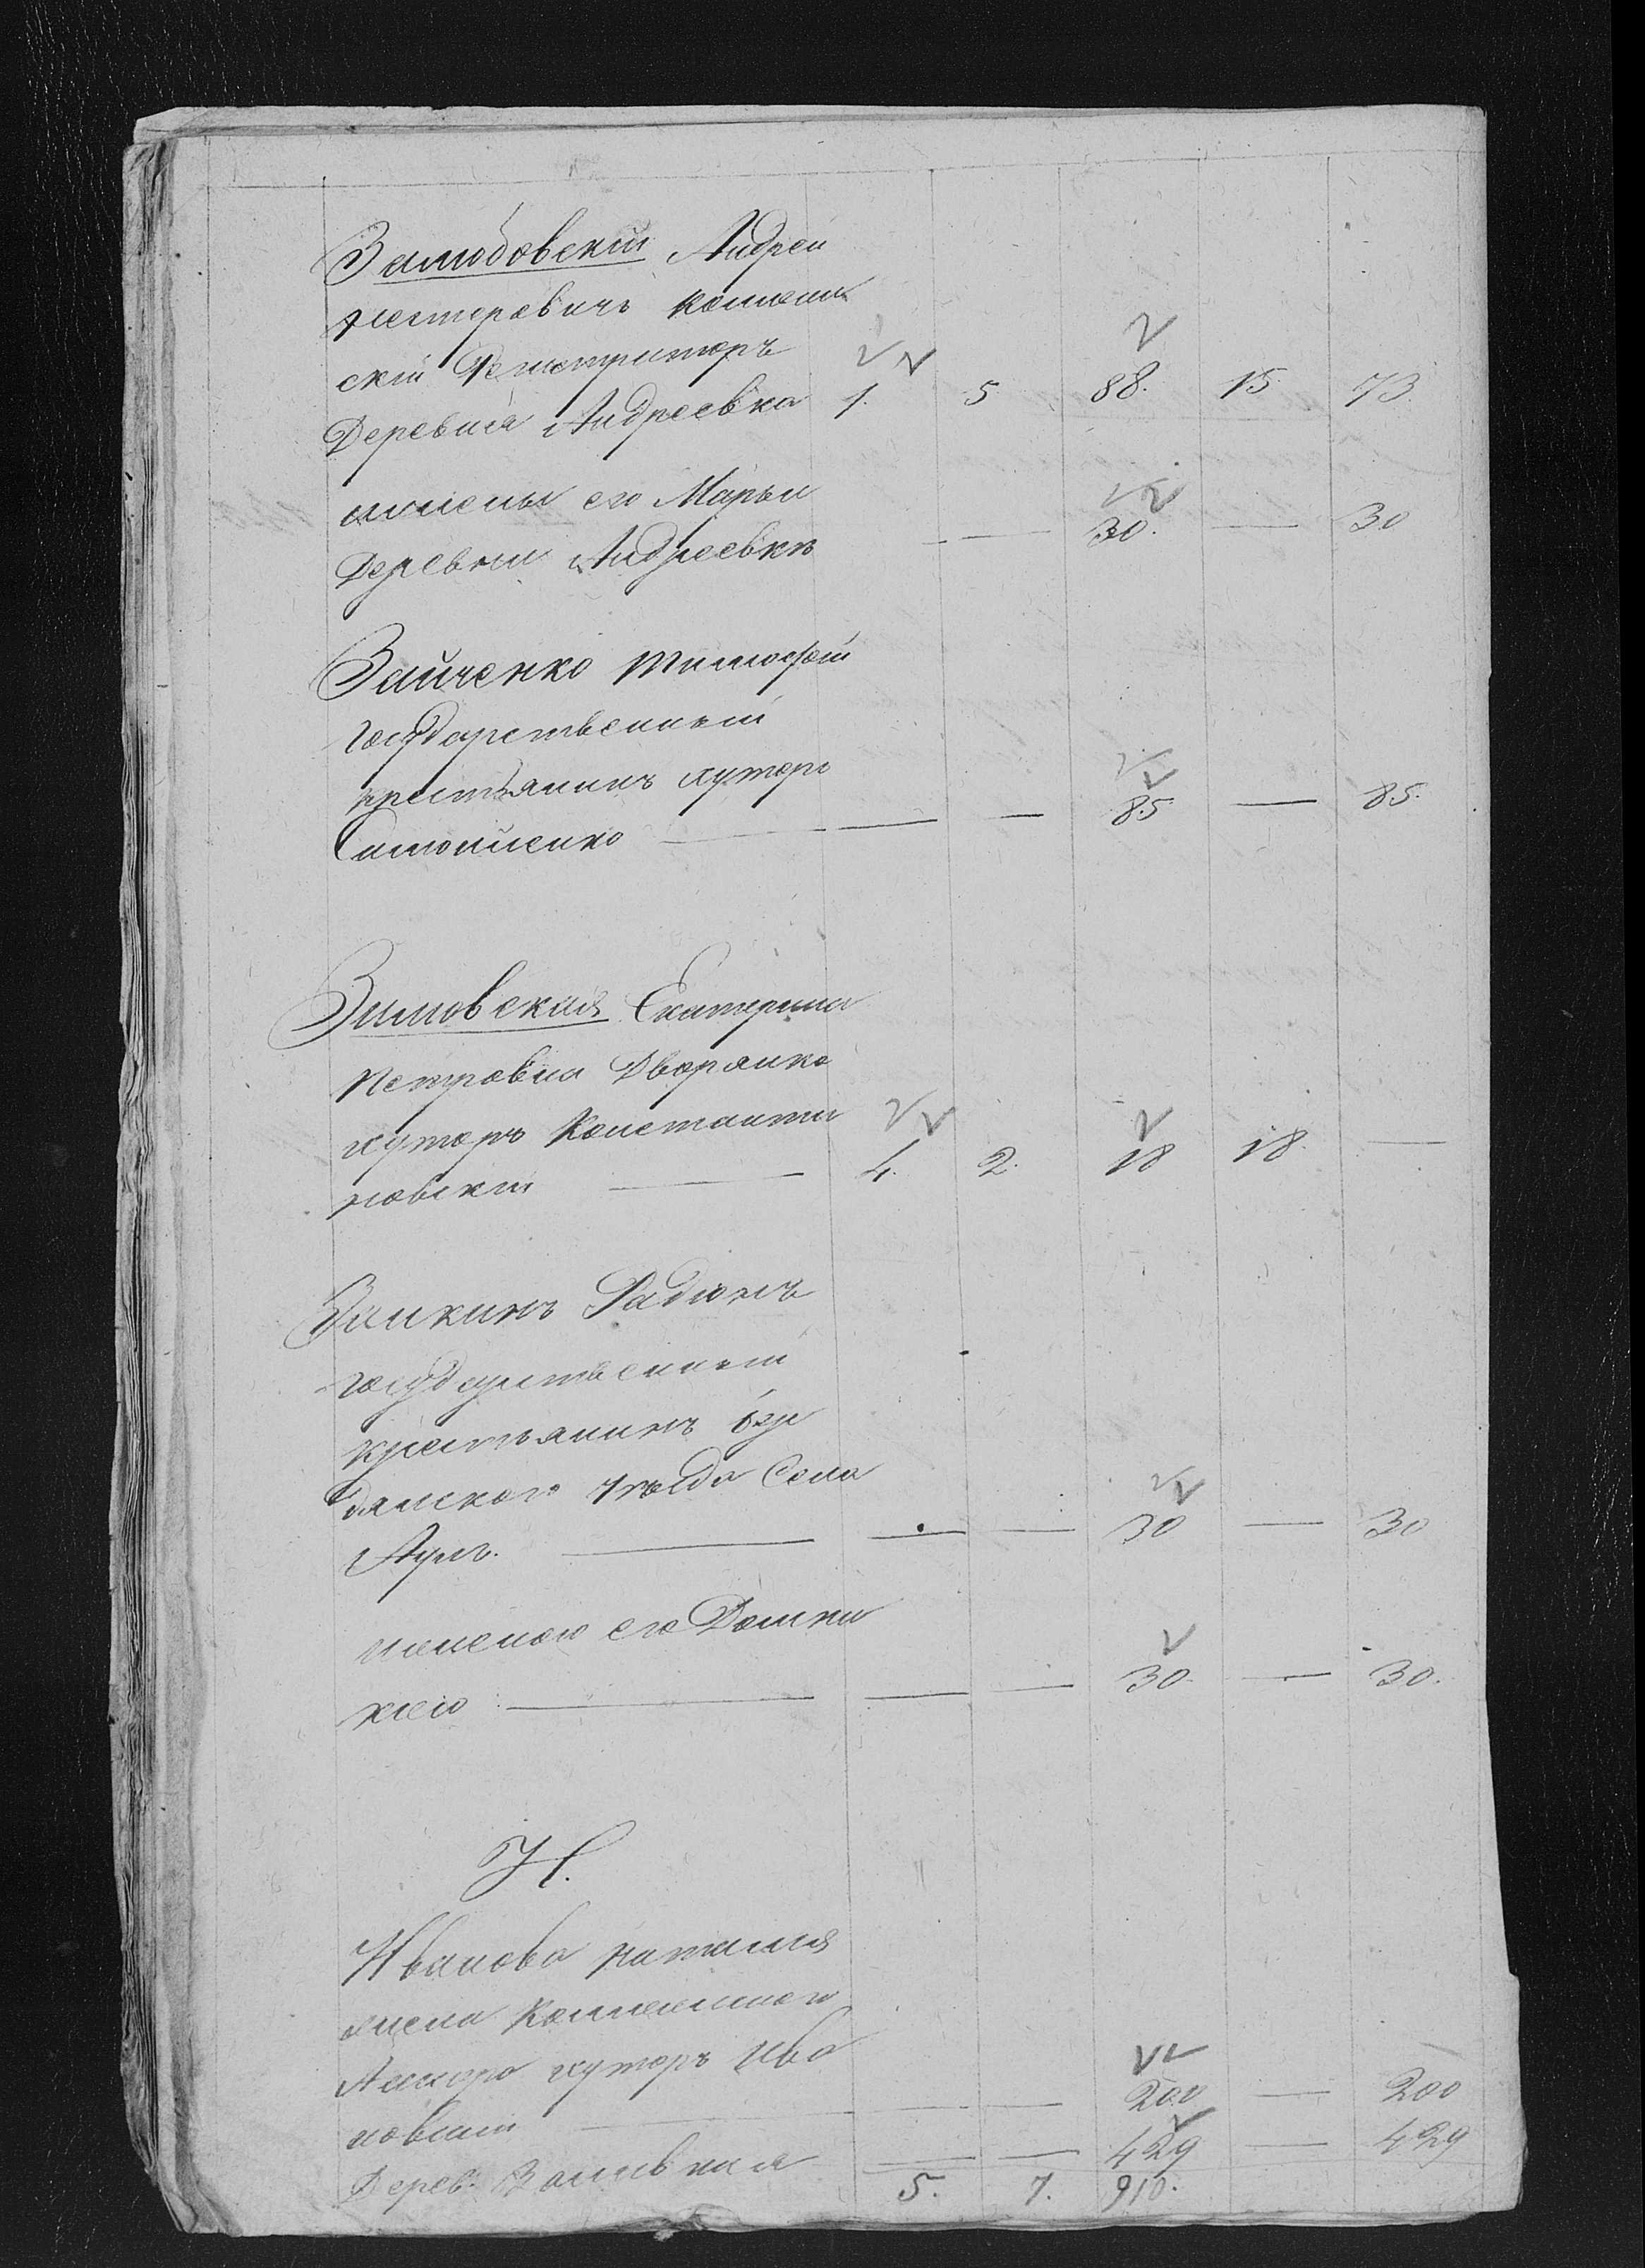 Андрей
Нестеровичъ Коллеж
скій Регистраторъ
Деревня Андреевка 1. 5 88. 15 73.
жены его Марьи
Деревни Андреевки — — 30. — 30
Зайченко Тимофей
государственный
крестьянинъ хуторъ
— — 85 — 85.
Зимовская Екатерина
Петровна Дворянка
хуторъ Константи
новскій — 4. 2. 18 18. —
Заикинъ Радіонъ
государственный
крестьянинъ бер
дянскаго уѣзда Село
— — — 30 — 30
женою его Домни
кіею — — — 30. — 30.
И.
Иванова Наталия
жена Коллежскаго
хуторъ Ива
новскій — — — 200 — 200
Дерев. — — 429 — 429
5. 7. 910.